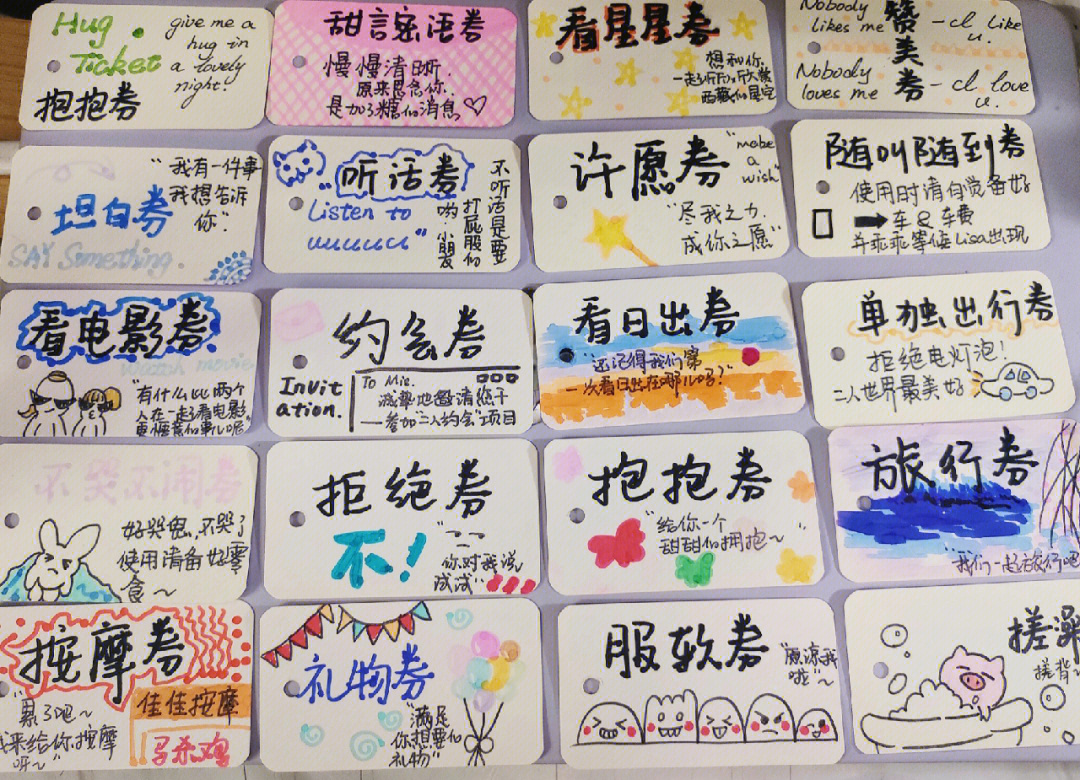 Hug
Ticket
抱抱券
give me a
hug in
a lovely
night!
甜言蜜语券
慢慢清晰.
原来思念你..
是加了糖们消息♡
看星星券
想和你
西藏们星空
Nobody
likes me
Nobody
loves me
赞美券
- cl like
u.
- cl love
u.
坦白券
"我有一件事
我想告诉
你"
SAY Something.
听话券
"Listen to
uuuuuu"
不听话是要
打屁股们
哟小朋友
许愿券
"make
a
wish"
"尽我之力.
成你之愿"
随叫随到券
使用时请自觉备好
车&车费
并乖乖等候Lisa出现
看电影券
watch movie
"有什么比两个
人在一起看电影,
更惬意们事儿呢"
约会券
Invit
ation.
To Mic.
诚挚地邀请您于
一参加二人约会"项目
看日出券
"还记得我们第
一次看日出在哪儿吗?"
单独出行券
拒绝电灯泡!
二人世界最美好
不哭不闹券
好哭鬼,不哭了
使用请备好零
食~
拒绝券
不!
"你对我说,
试试"
抱抱券
"给你一个
甜甜们拥抱~"
旅行券
"我们一起去旅行吧
按摩券
"累了吧~
我来给你按摩
呀~
佳佳按摩
马杀鸡
礼物券
"满足
你想要们
礼物"
服软券
"原谅我
啦"~
搓澡
搓背